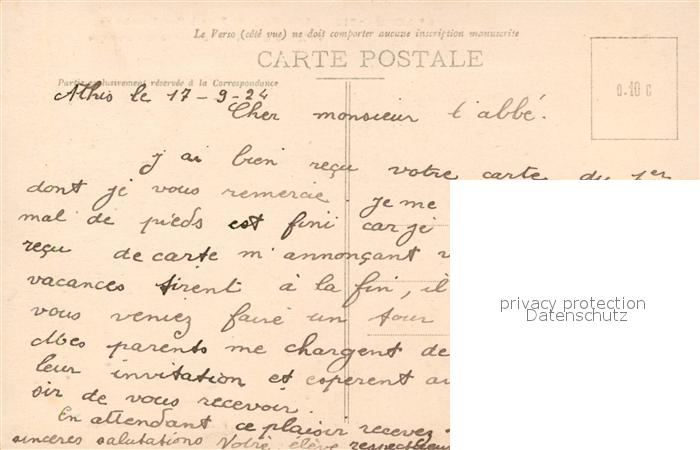 Le Verso (côté vue) ne doit comporter aucune inscription manuscrite
CARTE POSTALE
Partie exclusivement réservée à la Correspondance
Athis le 17-9-24
0.40 c
Cher monsieur l'abbé.
j ai bien reçu votre carte du 1er
dont je vous remercie. Je me
mal de pieds est fini car je
reçu de carte m'annonçant
vacances tirent à la fin, il
vous veniez faire un tour
Mes parents me chargent de
leur invitation et esperent
sir de vous recevoir.
En attendant ce plaisir recevez
sinceres salutations Votre élève respectueux
privacy protection
Datenschutz